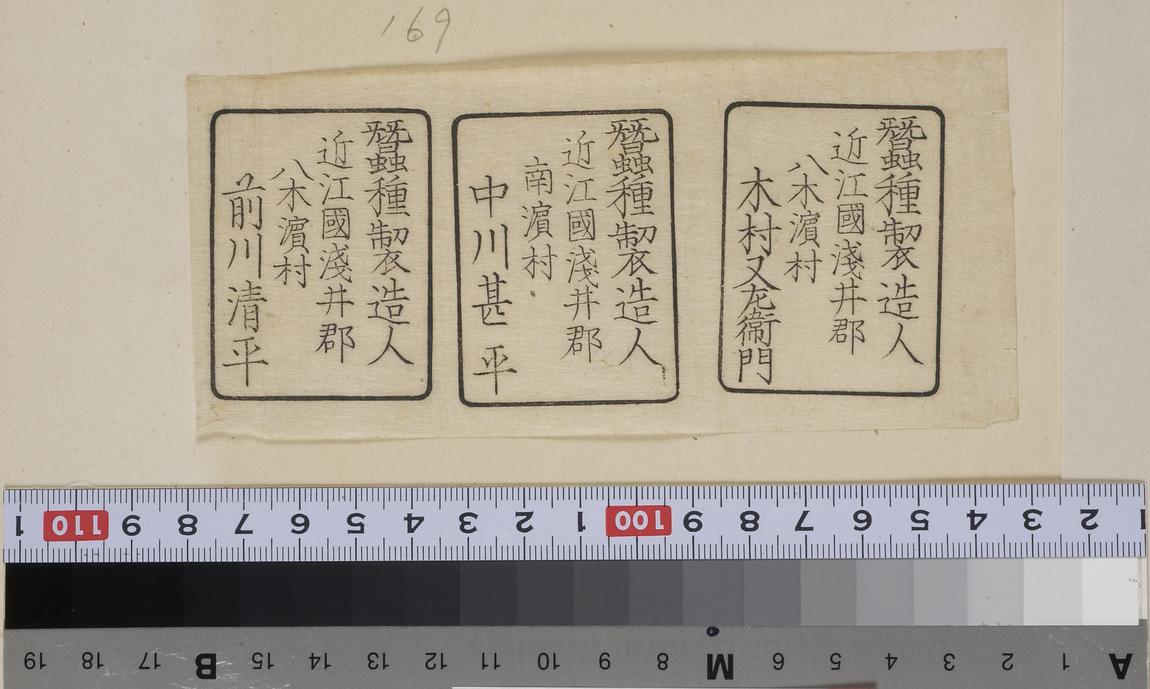 169
蠶種製造人
近江國淺井郡
八木濱村
木村又左衞門
蠶種製造人
近江國淺井郡
南濱村
中川甚平
蠶種製造人
近江國淺井郡
八木濱村
前川清平
1 110 9 8 7 6 5 4 3 2 1 100 9 8 7 6 5 4 3 2 1
19 18 17 B 15 14 13 12 11 10 9 8 M 6 5 4 3 2 1 A